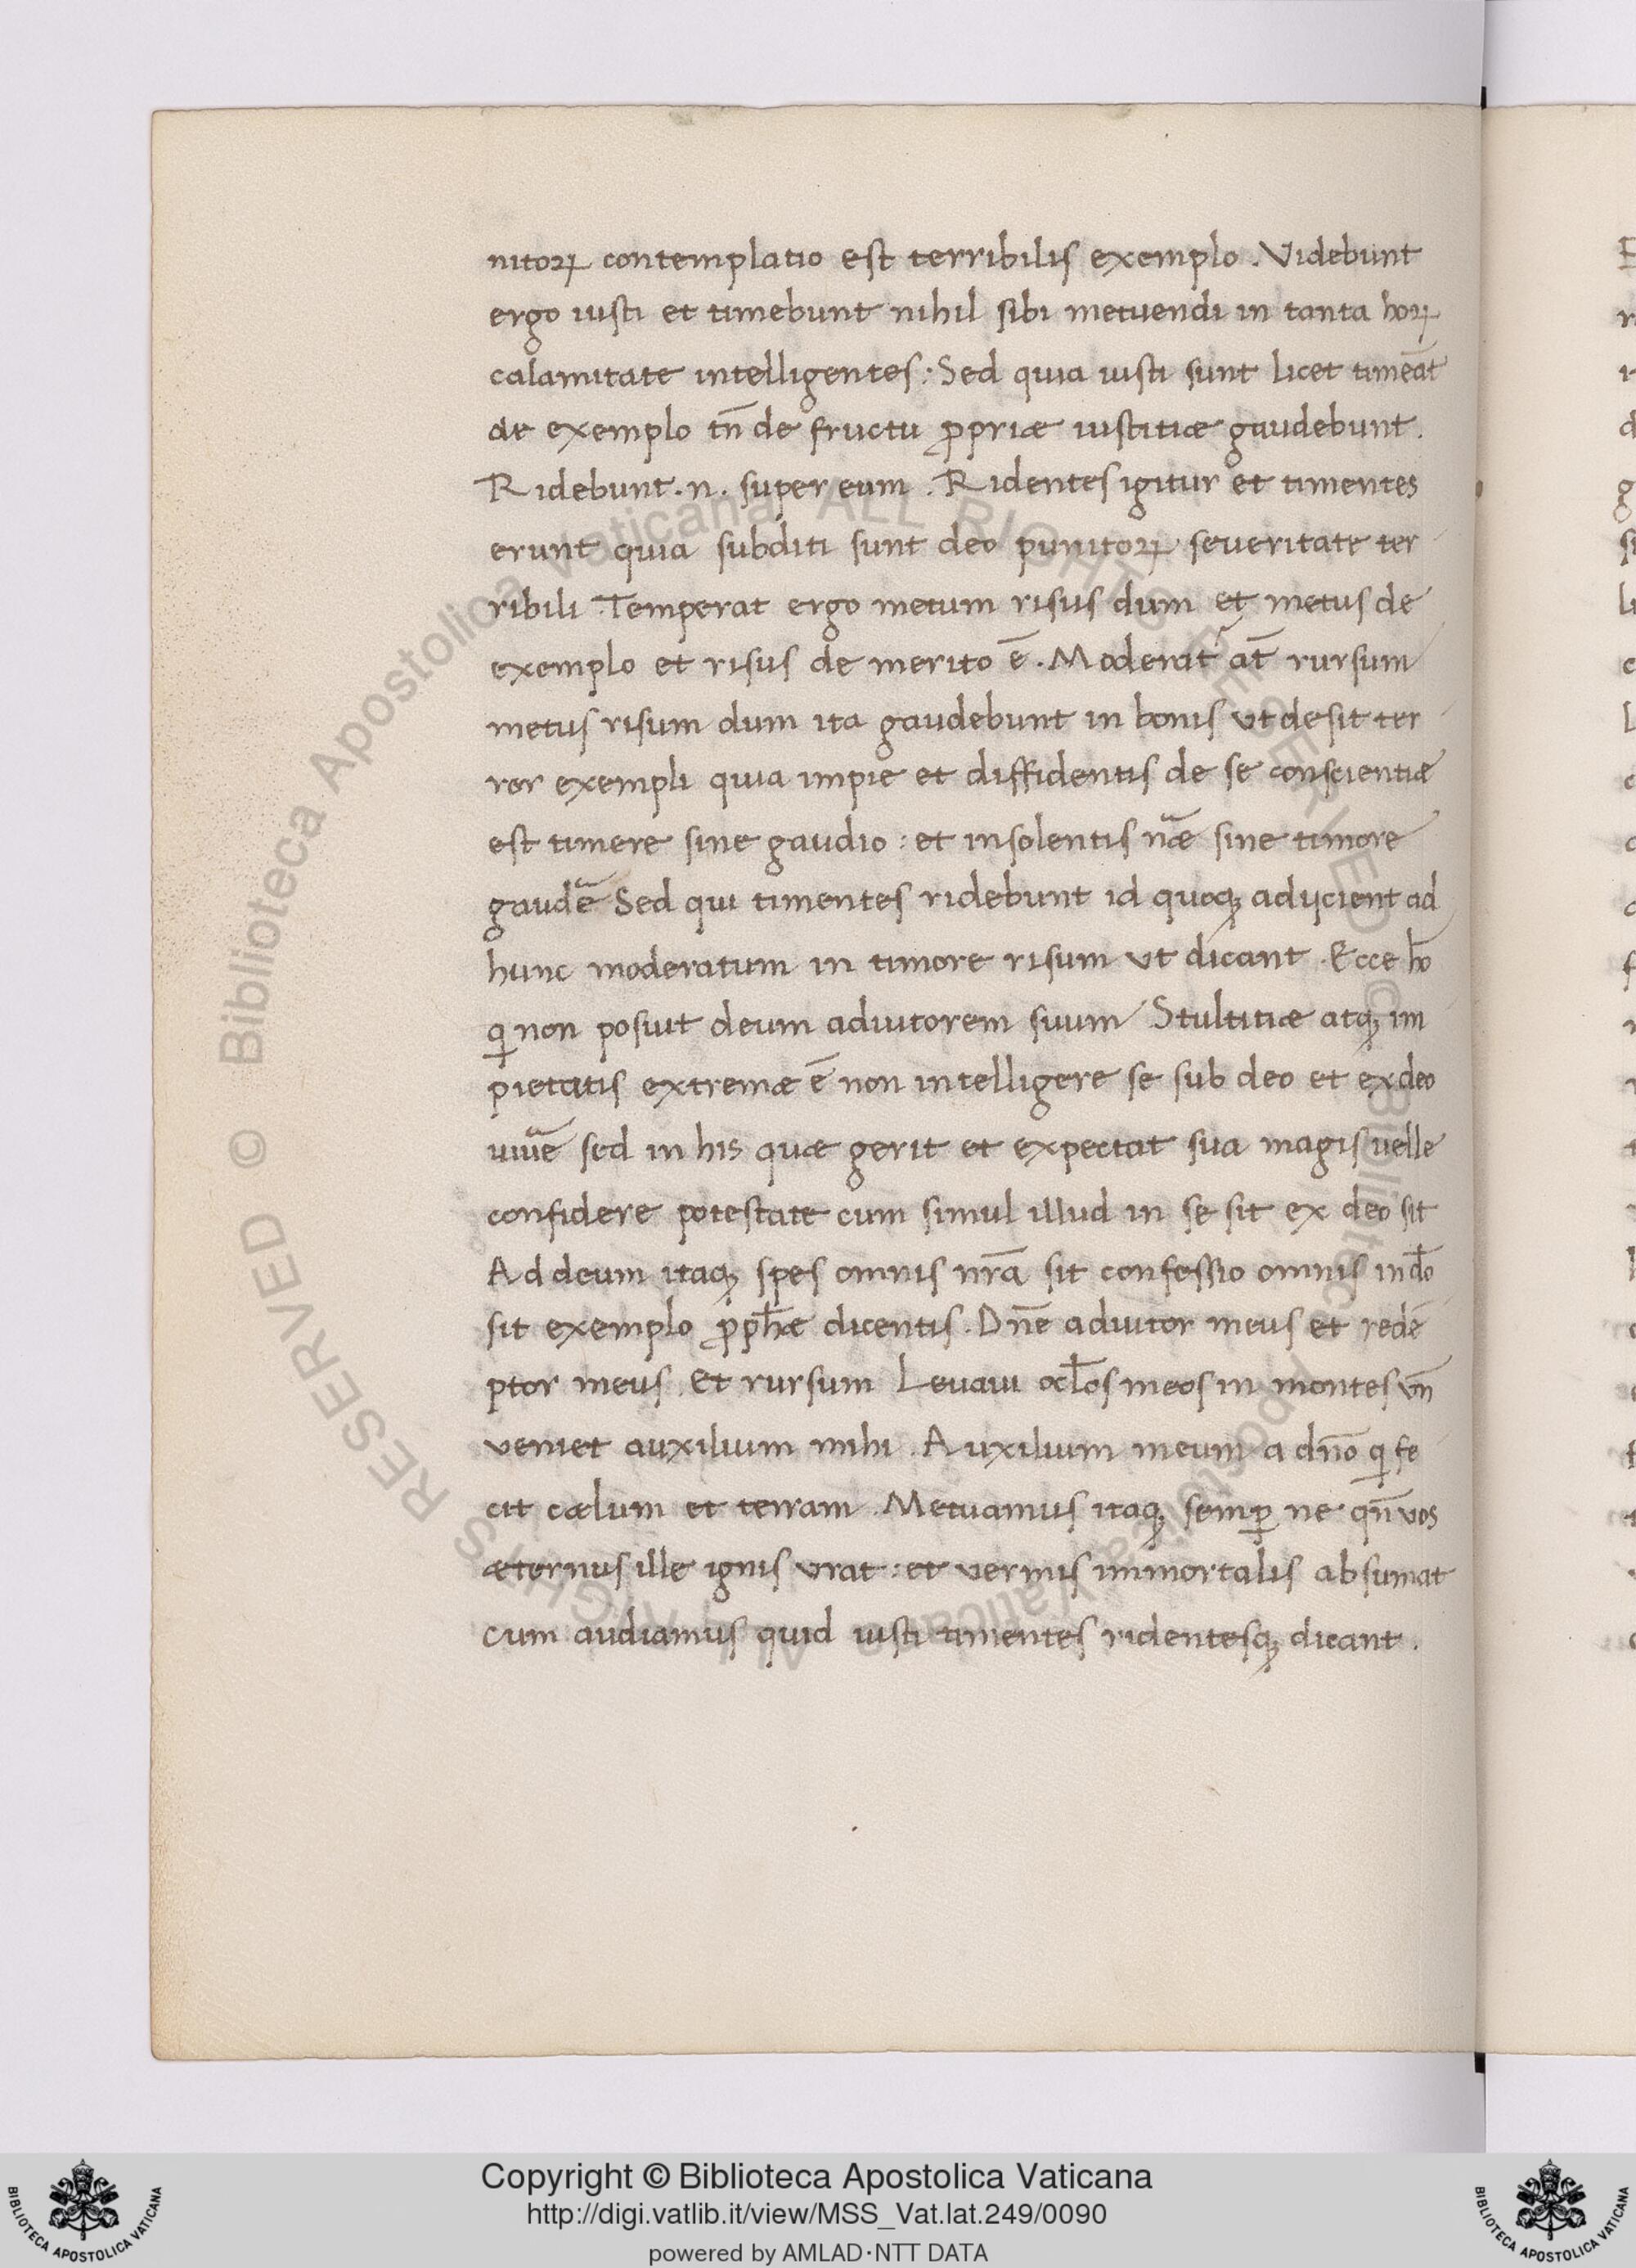 nitoꝝ contemplatio est terribilis exemplo. Videbunt
ergo iusti et timebunt nihil sibi metuendi in tanta hoꝝ
calamitate intelligentes: Sed quia iusti sunt licet timeāt
de exemplo tñ de fructu ꝓpriæ iustitiæ gaudebunt.
Ridebunt .n. super eum. Ridentes igitur et timentes
erunt quia subditi sunt deo punitoꝝ seueritate ter
ribili. Temperat ergo metum risus dum et metus de
exemplo et risus de merito ē. Moderat᷑ at̄ rursum
metus risum dum ita gaudebunt in bonis ut desit ter
ror exempli quia impie et diffidentis de se conscientiæ
est timere sine gaudio: et insolentis nāe sine timore
gaudē Sed qui timentes ridebunt id quoqꝫ adijcient ad
hunc moderatum in timore risum ut dicant. Ecce hō
qi non posuit deum adiutorem suum Stultitiæ atqꝫ im
pietatis extremæ ē non intelligere se sub deo et ex deo
uiuē sed in his quæ gerit et expectat sua magis uelle
confidere potestate cum simul illud in se sit ex deo sit
Ad deum itaqꝫ spes omnis nr̄a sit confessio omnis in dō
sit exemplo ꝓph̄æ dicentis. Dn̄e adiutor meus et redē
ptor meus. Et rursum Leuaui ocl̄os meos in montes vn̄
veniet auxilium mihi. Auxilium meum a dn̄o qi fe
cit cælum et terram. Metuamus itaqꝫ semꝑ ne qn̄ vos
æternus ille ignis urat: et vermis immortalis absumat
cum audiamus quid iusti timentes ridentesqꝫ dicant.
Copyright © Biblioteca Apostolica Vaticana
http://digi.vatlib.it/view/MSS_Vat.lat.249/0090
powered by AMLAD·NTT DATA